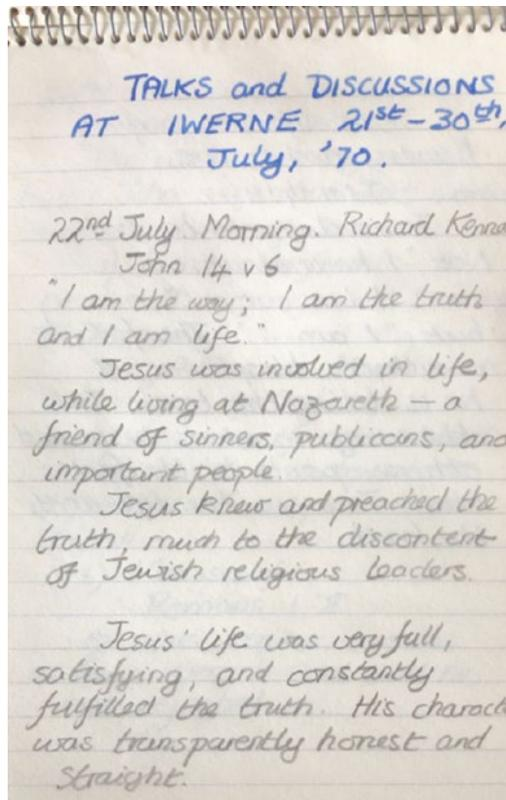 TALKS and DISCUSSIONS
AT IWERNE 21st-30th,
July, '70.
22nd July Morning. Richard Kenna
John 14 v 6
"I am the way; I am the truth
and I am life."
Jesus was involved in life,
while living at Nazareth — a
friend of sinners, publicans, and
important people.
Jesus knew and preached the
truth, much to the discontent
of Jewish religious leaders.
Jesus' life was very full,
satisfying, and constantly
fulfilled the truth. His charact
was transparently honest and
straight.